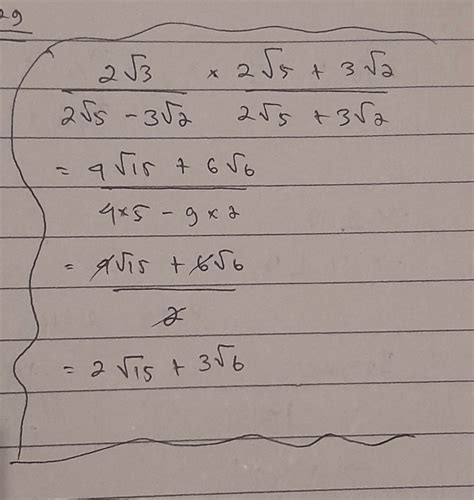 29
2√3 × 2√5 + 3√2
2√5 - 3√2 2√5 + 3√2
= 4√15 + 6√6
4×5 - 9×2
= 4√15 + 6√6
2
= 2√15 + 3√6